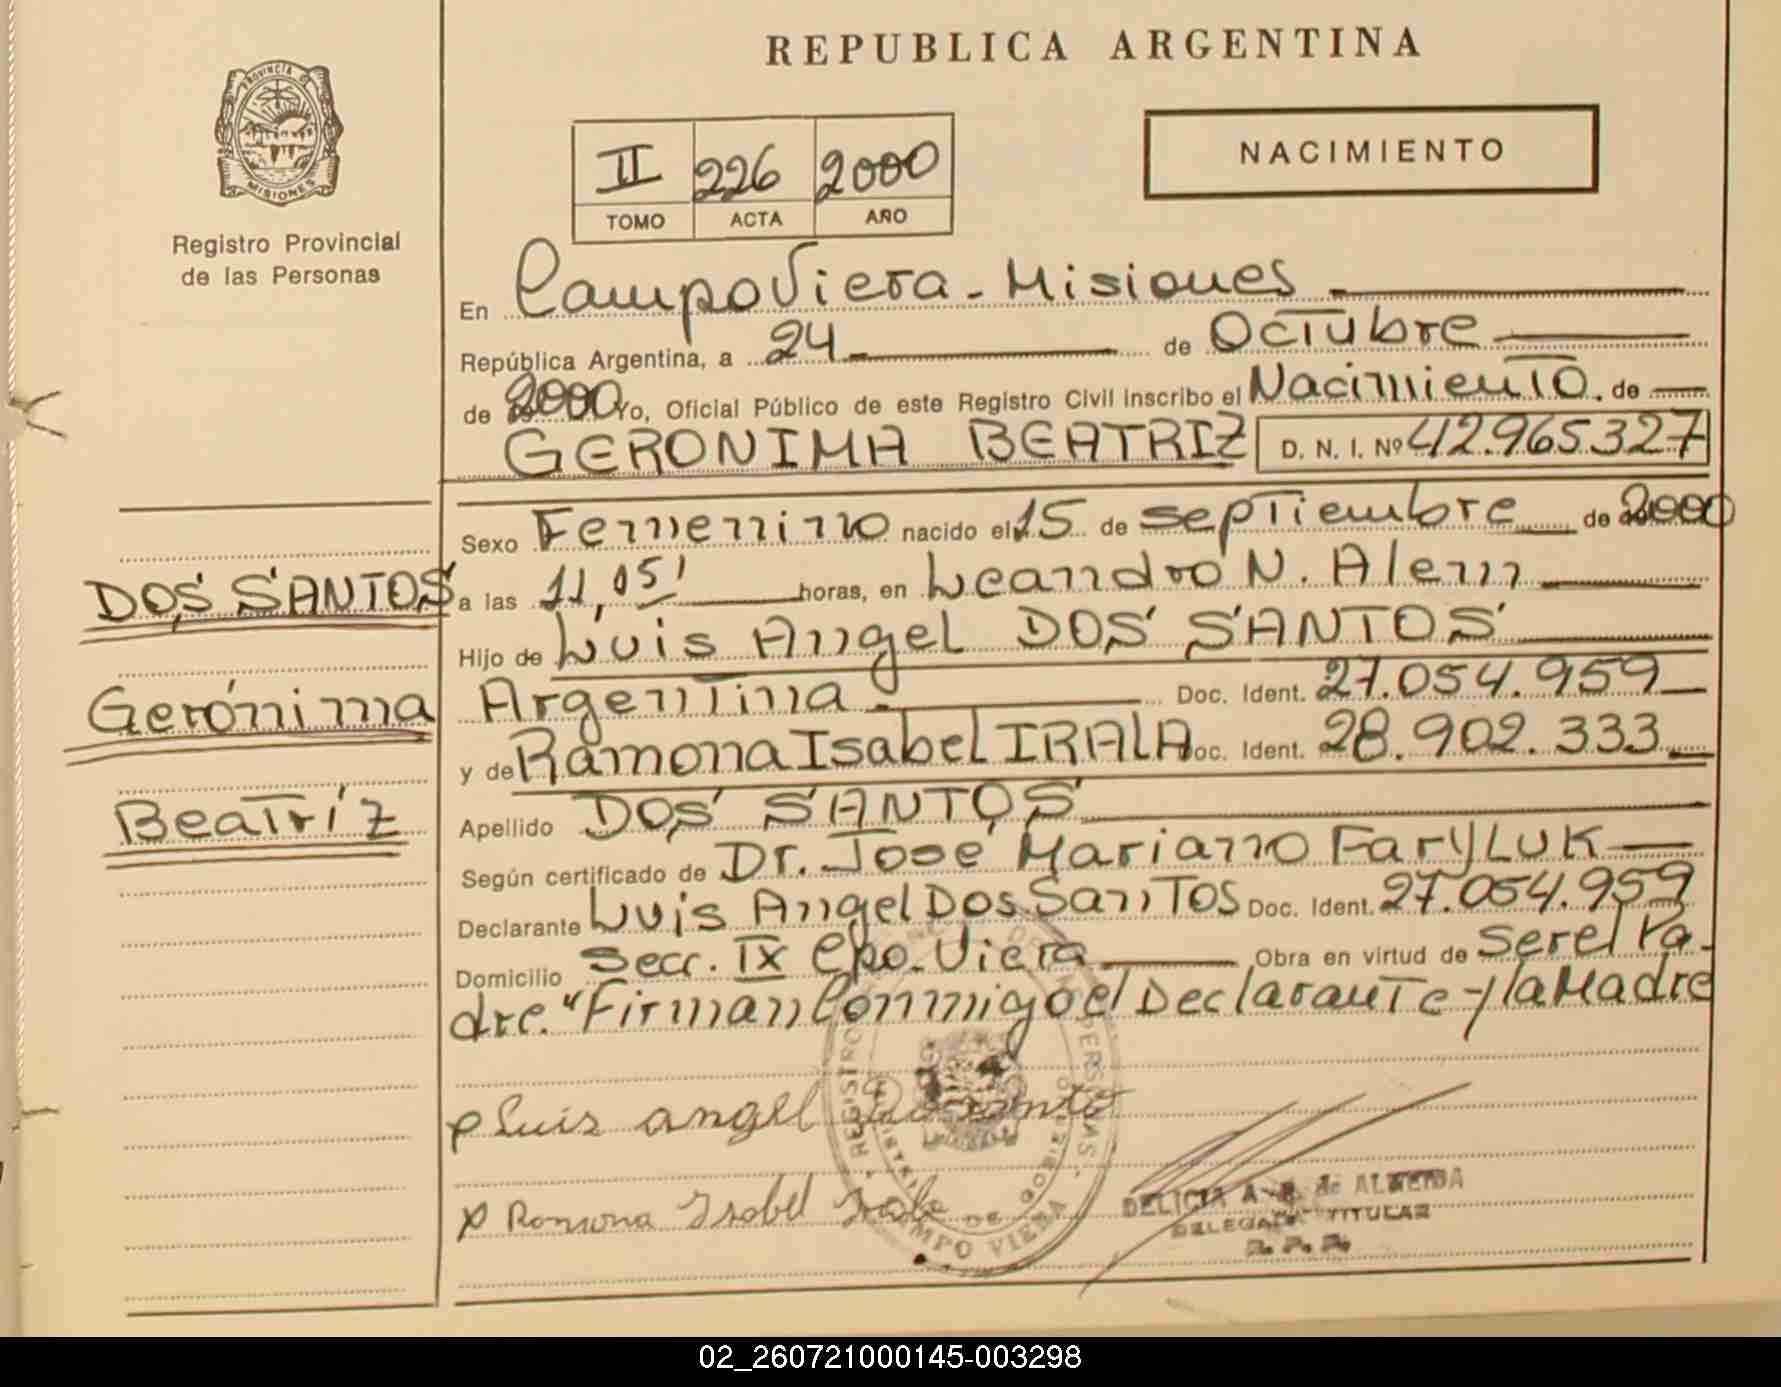 REPUBLICA ARGENTINA
PROVINCIA DE
MISIONES
Registro Provincial
de las Personas
II 226 2000
TOMO ACTA AÑO
NACIMIENTO
En Campo Viera - Misiones
República Argentina, a 24 de Octubre
de 2000 Yo, Oficial Público de este Registro Civil inscribo el Nacimiento. de
GERONIMA BEATRIZ D. N. I. Nº 42.965.327
Sexo Femenino nacido el 15 de septiembre de 2000
DOS SANTOS
a las 11,05' horas, en Leandro N. Alem
Hijo de Luis Angel DOS SANTOS
Gerónima
Argentina Doc. Ident. 27.054.959
y de Ramona Isabel IRALA Doc. Ident. 28.902.333
Beatríz
Apellido DOS SANTOS
Según certificado de Dr. José Mariano FaryLUK
Declarante Luis Angel Dos Santos Doc. Ident. 27.054.959
Domicilio Secc. IX Cpo. Viera Obra en virtud de ser el Pa-
dre. "Firman Conmigo el Declarante y la Madre
Luis angel Dos Santo
Ramona Isabel Irala
REGISTRO PERSONAS
CAMPO VIERA
DELICIA A. de ALMEIDA
DELEGADA TITULAR
R. P. P.
02_260721000145-003298